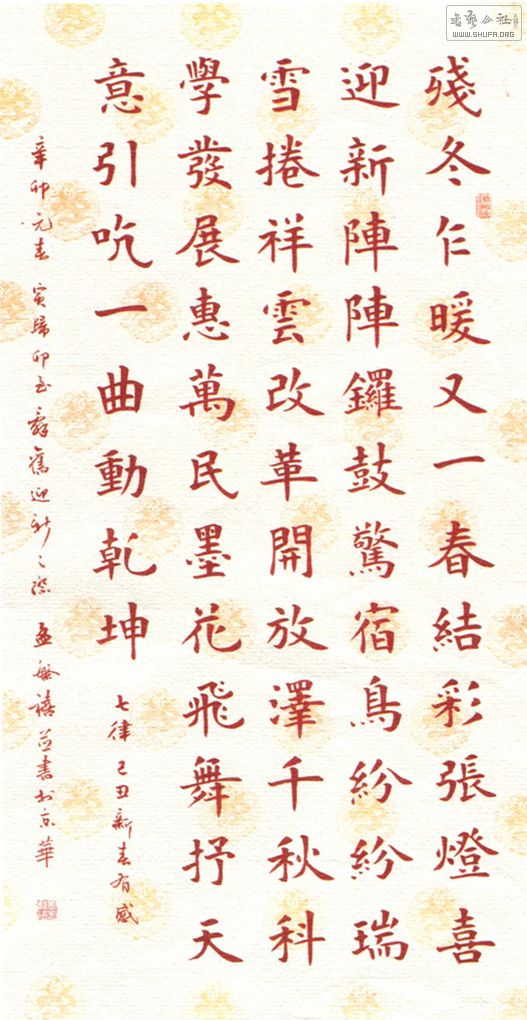 殘冬乍暖又一春結彩張燈喜
迎新陣陣鑼鼓驚宿鳥紛紛瑞
雪捲祥雲改革開放澤千秋科
學發展惠萬民墨花飛舞抒天
意引吭一曲動乾坤
七律 己丑新春有感
辛卯元春 寅歸卯至辭舊迎新之際 孟繁禧并書於京華
WWW.SHUFA.ORG